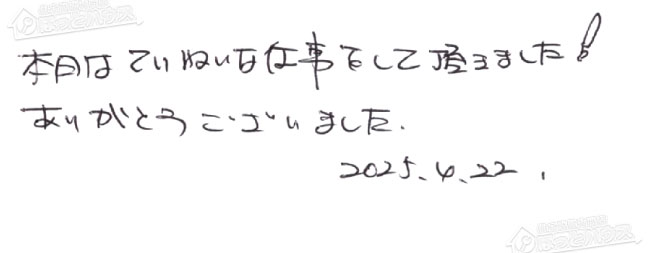 本日はていねいな仕事をして頂きました!
ありがとうございました.
2025.4.22.